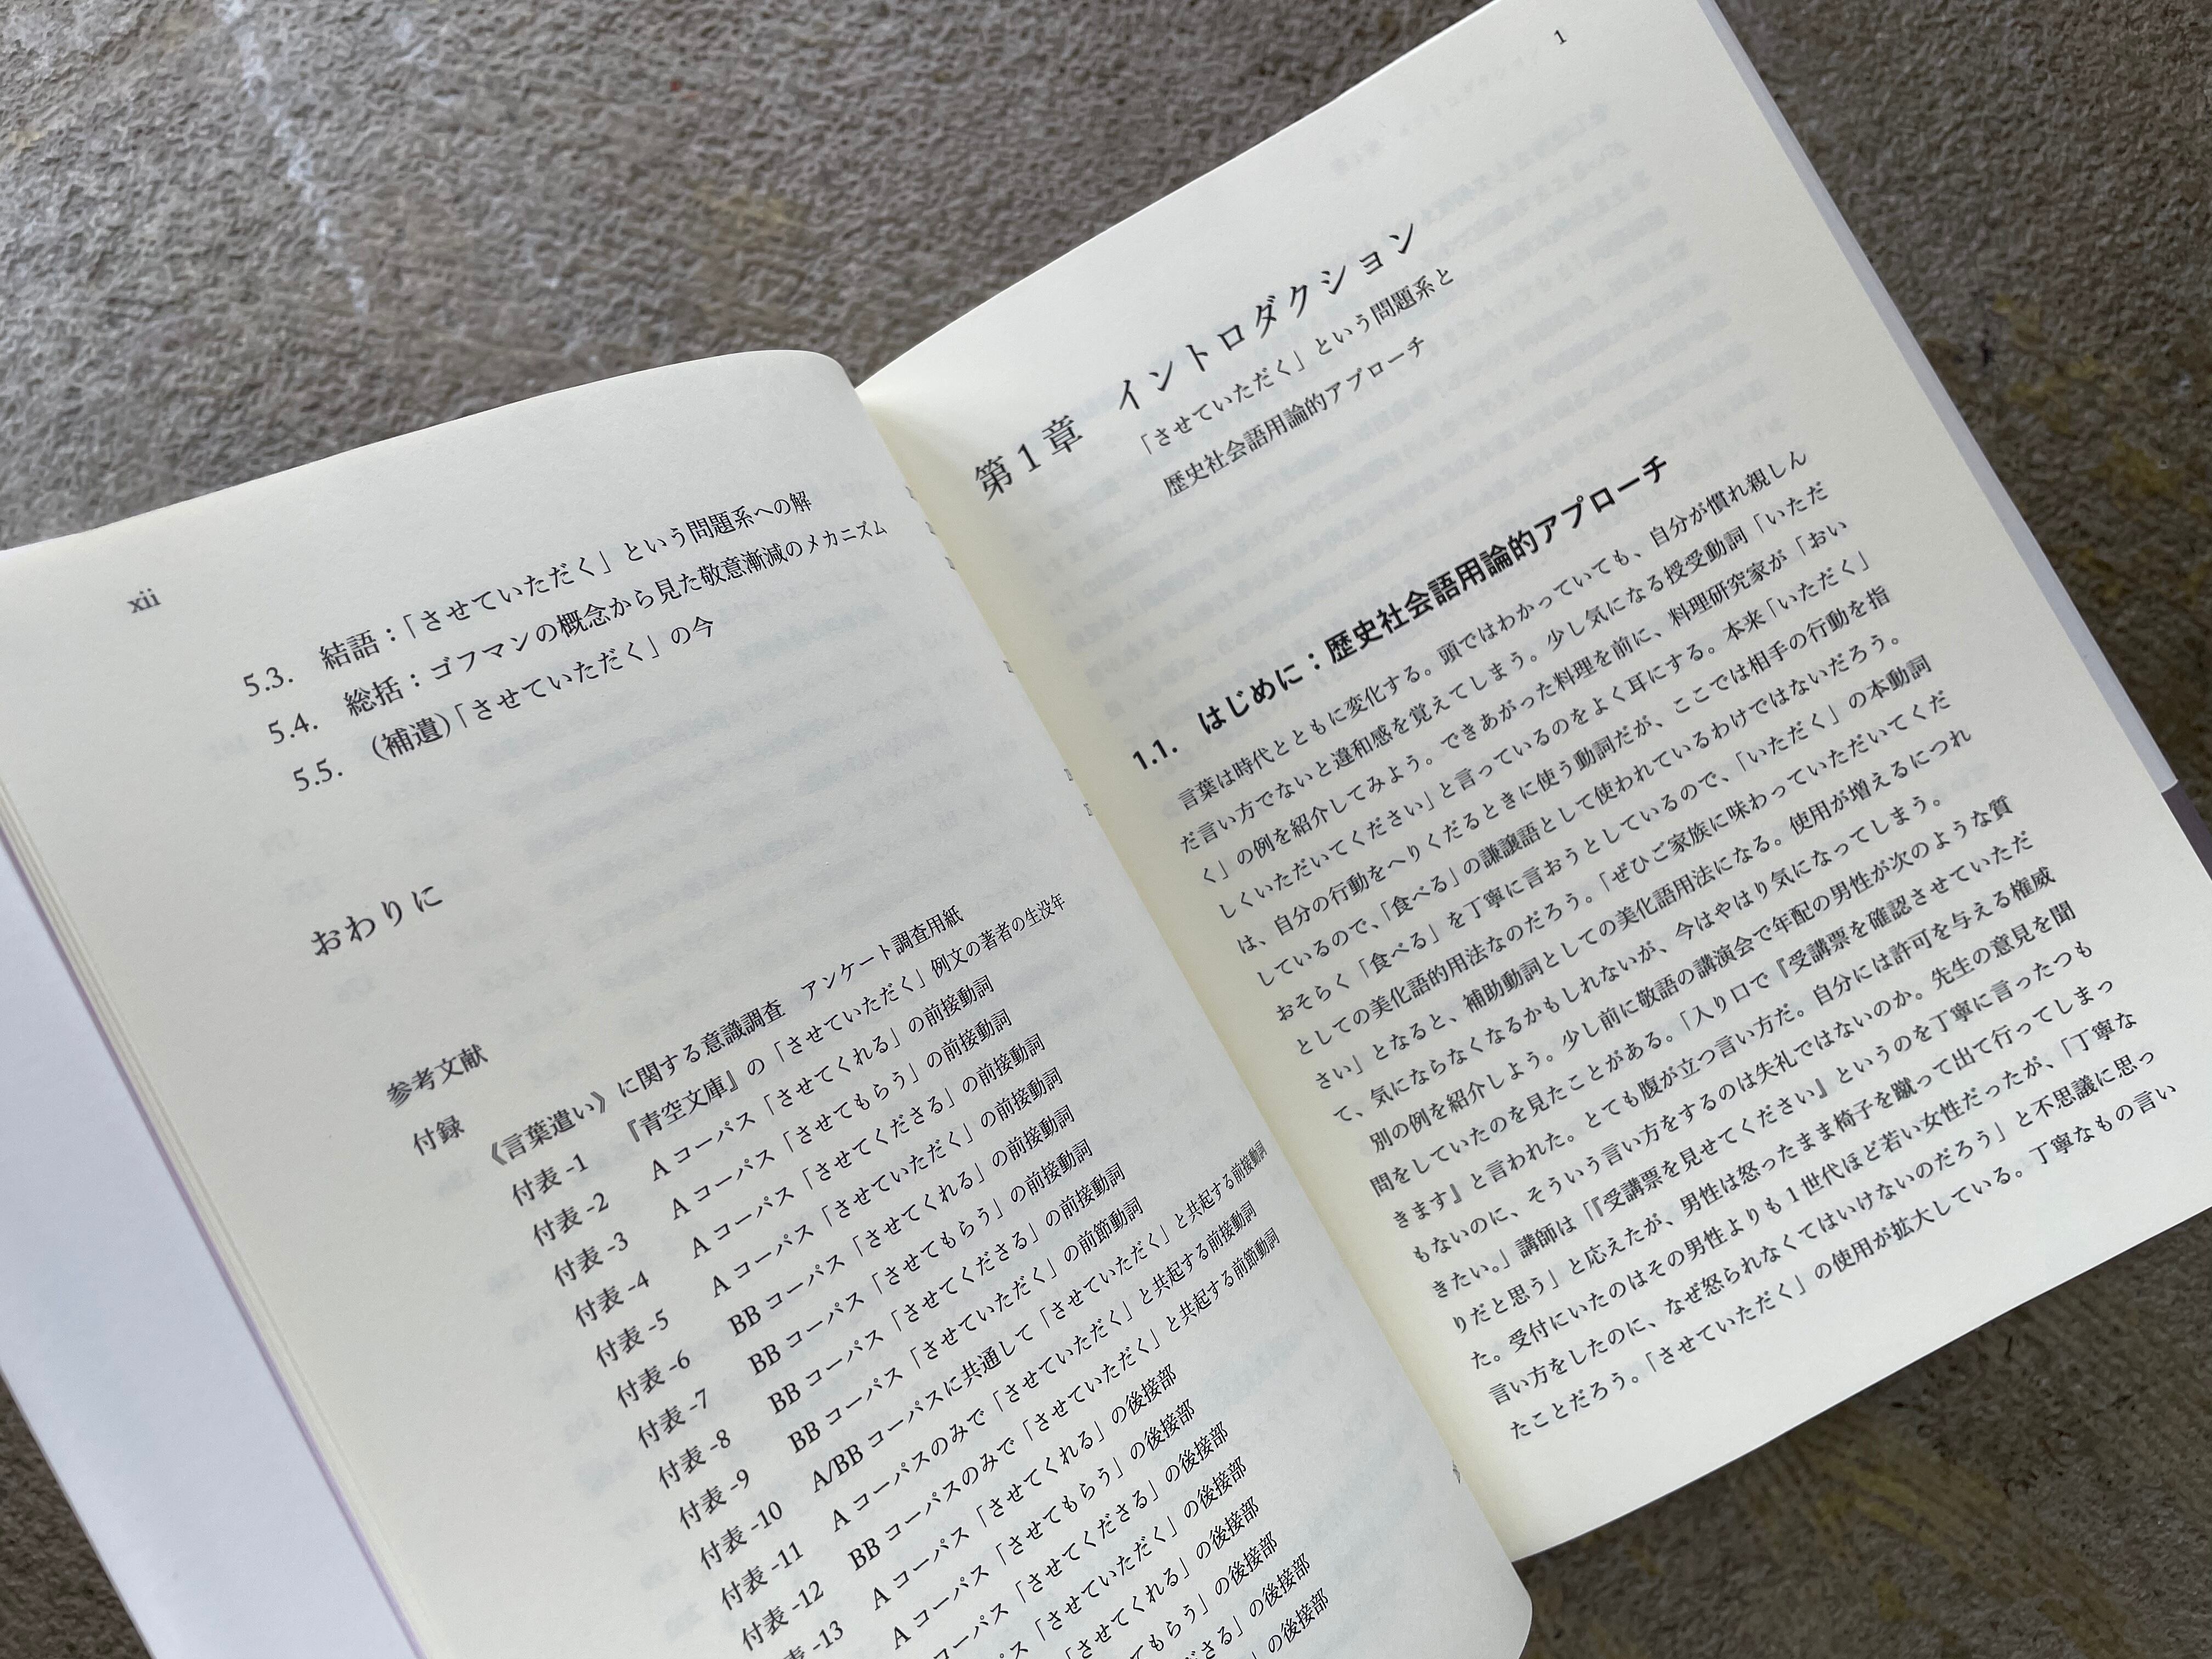 xii
5.3. 結語：「させていただく」という問題系への解
5.4. 総括：ゴフマンの概念から見た敬意漸減のメカニズム
5.5. （補遺）「させていただく」の今
おわりに
参考文献
付録 《言葉遣い》に関する意識調査　アンケート調査用紙
付表-1 『青空文庫』の「させていただく」例文の著者の生没年
付表-2 A コーパス「させてくれる」の前接動詞
付表-3 A コーパス「させてもらう」の前接動詞
付表-4 A コーパス「させてくださる」の前接動詞
付表-5 A コーパス「させていただく」の前接動詞
付表-6 BB コーパス「させてくれる」の前接動詞
付表-7 BB コーパス「させてもらう」の前接動詞
付表-8 BB コーパス「させてくださる」の前接動詞
付表-9 BB コーパス「させていただく」の前節動詞
付表-10 A/BB コーパスに共通して「させていただく」と共起する前接動詞
付表-11 A コーパスのみで「させていただく」と共起する前接動詞
付表-12 BB コーパスのみで「させていただく」と共起する前節動詞
表-13 A コーパス「させてくれる」の後接部
A コーパス「させてもらう」の後接部
コーパス「させてくださる」の後接部
パス「させていただく」の後接部
「させてくれる」の後接部
てもらう」の後接部
ださる」の後接部
」の後接部
1
第1章　イントロダクション
「させていただく」という問題系と
歴史社会語用論的アプローチ
1.1. はじめに：歴史社会語用論的アプローチ
言葉は時代とともに変化する。頭ではわかっていても、自分が慣れ親しん
だ言い方でないと違和感を覚えてしまう。少し気になる授受動詞「いただ
く」の例を紹介してみよう。できあがった料理を前に、料理研究家が「おい
しくいただいてください」と言っているのをよく耳にする。本来「いただく」
は、自分の行動をへりくだるときに使う動詞だが、ここでは相手の行動を指
しているので、「食べる」の謙譲語として使われているわけではないだろう。
おそらく「食べる」を丁寧に言おうとしているので、「いただく」の本動詞
としての美化語的用法なのだろう。「ぜひご家族に味わっていただいてくだ
さい」となると、補助動詞としての美化語用法になる。使用が増えるにつれ
て、気にならなくなるかもしれないが、今はやはり気になってしまう。
別の例を紹介しよう。少し前に敬語の講演会で年配の男性が次のような質
問をしていたのを見たことがある。「入り口で『受講票を確認させていただ
きます』と言われた。とても腹が立つ言い方だ。自分には許可を与える権威
もないのに、そういう言い方をするのは失礼ではないのか。先生の意見を聞
きたい。」講師は「『受講票を見せてください』というのを丁寧に言ったつも
りだと思う」と応えたが、男性は怒ったまま椅子を蹴って出て行ってしまっ
た。受付にいたのはその男性よりも1世代ほど若い女性だったが、「丁寧な
言い方をしたのに、なぜ怒られなくてはいけないのだろう」と不思議に思っ
たことだろう。「させていただく」の使用が拡大している。丁寧なもの言い